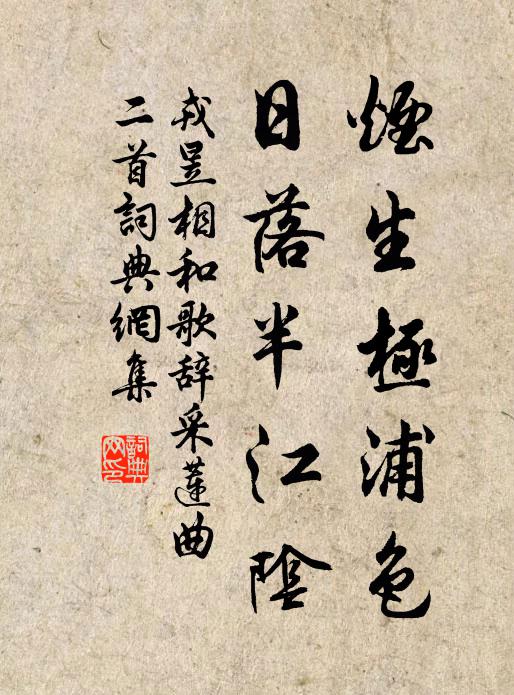 煙生極浦色
日落半江陰
戎昱相和歌辞采蓮曲
二首詞典網集
詞典网印